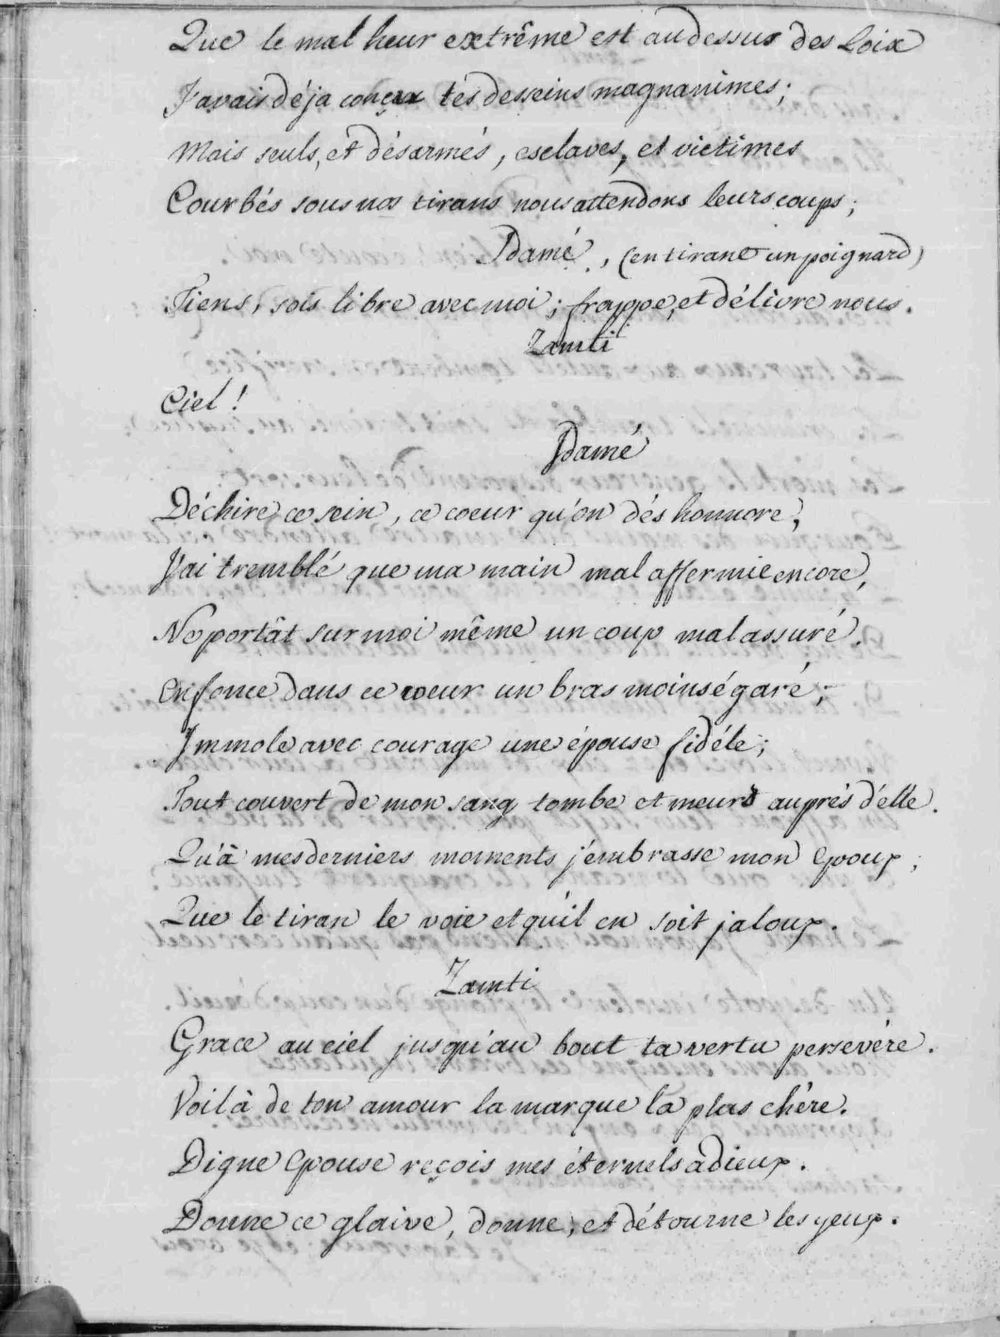 Que le malheur extrême est au dessus des Loix
J'avais déja conçu tes desseins magnanimes;
Mais seuls, et désarmés, esclaves, et victimes
Courbés sous nos tirans nous attendons leurs coups;
Idamé, (en tirant un poignard)
Tiens, sois libre avec moi; frappe, et délivre nous.
Zamti
Ciel!
Idamé
Déchire ce sein, ce coeur qu'on déshonnore,
J'ai tremblé que ma main mal affermie encore,
Ne portât sur moi même un coup mal assuré.
Enfonce dans ce coeur un bras moins égaré;
Immole avec courage une épouse fidéle;
Tout couvert de mon sang tombe et meurs auprés d'elle.
Qu'à mes derniers moments j'embrasse mon Epoux;
Que le tiran le voie et qu'il en soit jaloux.
Zamti
Grace au ciel jusqu'au bout ta vertu persevére.
Voilà de ton amour la marque la plus chére.
Digne Epouse reçois mes éternels adieux.
Donne ce glaive, donne, et détourne les yeux.